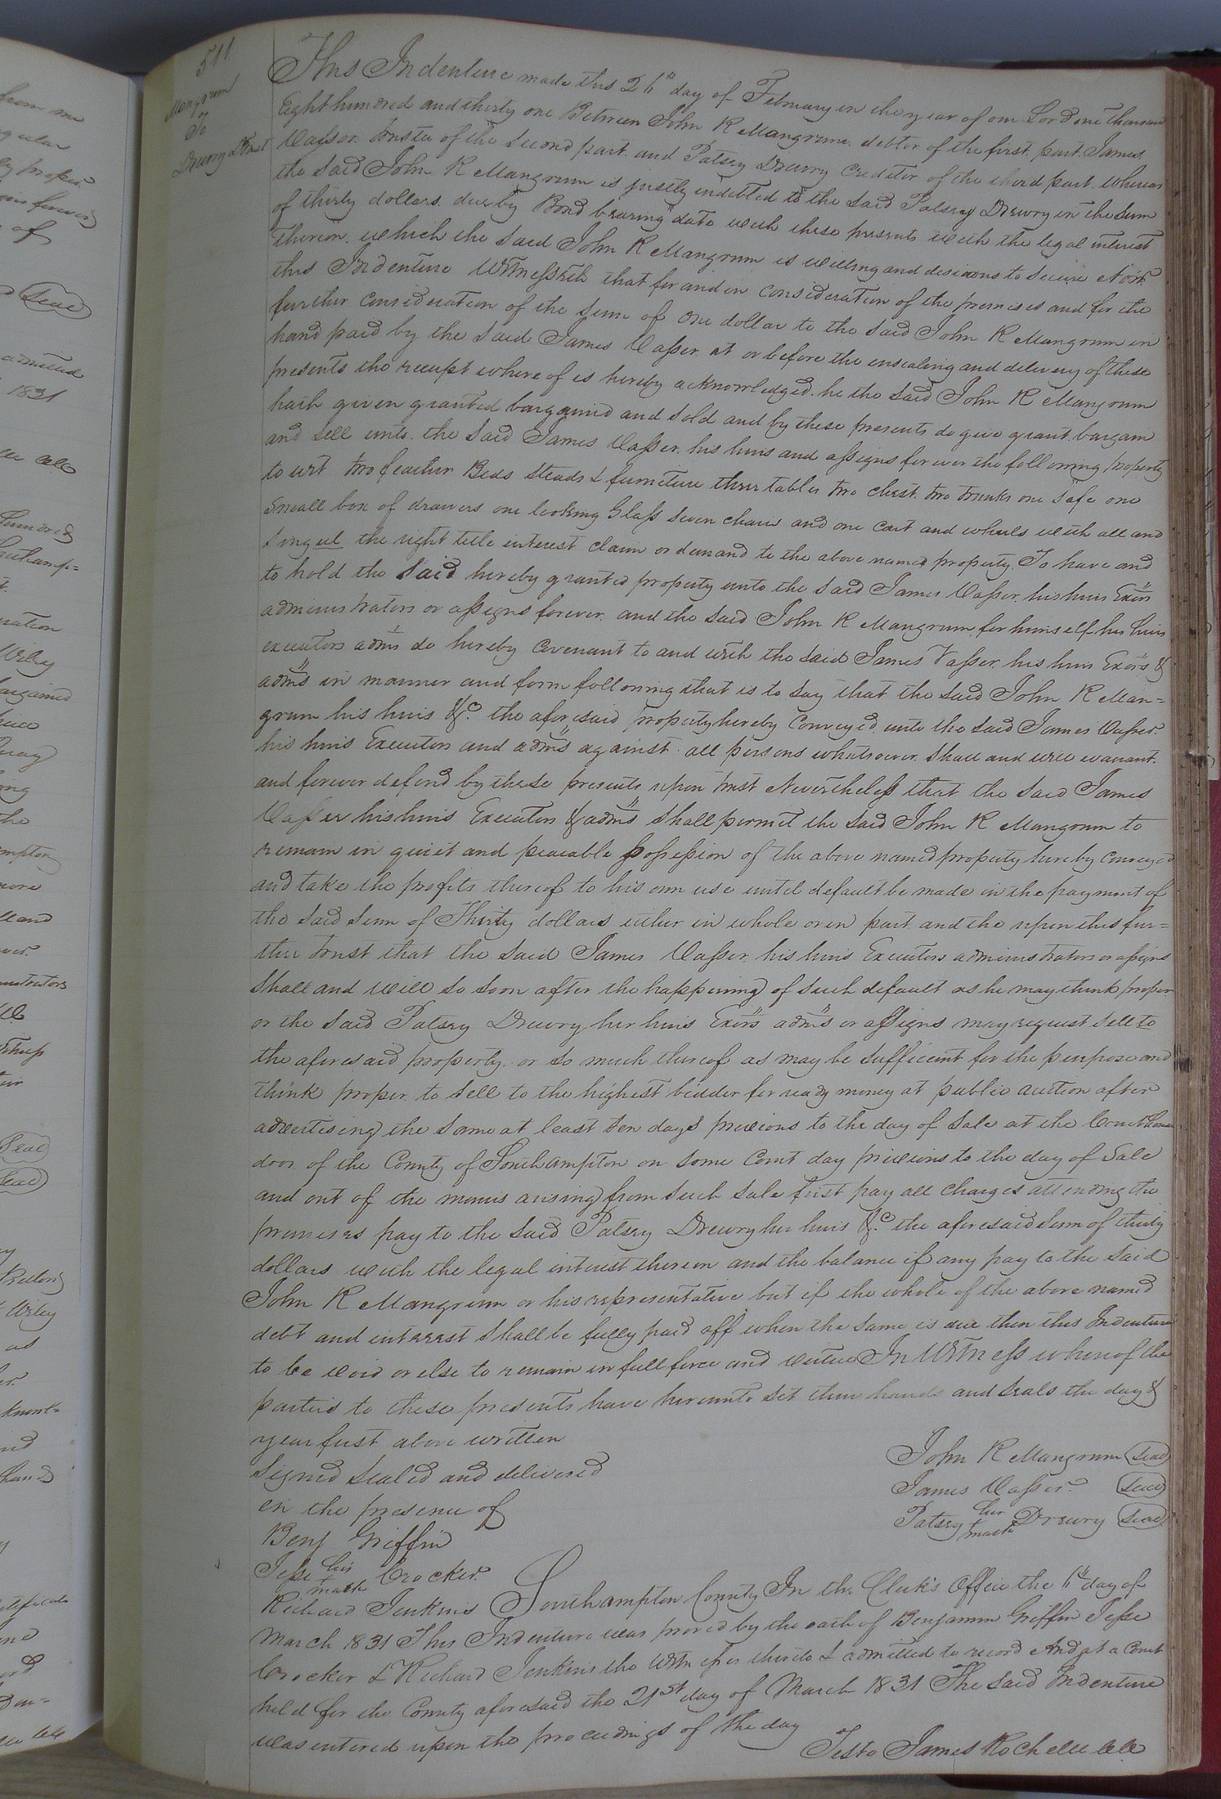 511
Mangrum
To
Drewry & Trust
This Indenture made this 24th day of February in the year of our Lord one thousand
Eight hundred and thirty one Between John R Mangrum debtor of the first part James
Vasser trustee of the second part and Patsey Drewry Creditor of the third part whereas
the said John R Mangrum is justly indetted to the said Patsey Drewry in the sum
of thirty dollars due by Bond bearing date with these presents with the legal interest
thereon which the said John R Mangrum is willing and desirous to secure Now
this Indenture Witnesseth that for and in consideration of the premises and for the
further consideration of the sum of one dollar to the said John R Mangrum in
hand paid by the said James Vasser at or before the ensealing and delivery of these
presents the receipt where of is hereby acknowledged he the said John R Mangrum
hath given granted bargained and sold and by these presents do give grant bargain
and sell unto the said James Vasser his heirs and assigns for ever the following property
to wit two feather Beds steads & furniture three tables two chest two trunks one safe one
small box of drawers one looking Glass seven chairs and one cart and wheels with all and
singul the right title interest claim or demand to the above named property To have and
to hold the said hereby granted property unto the said James Vasser his heirs Exors
administrators or assigns forever and the said John R Mangrum for himself his heirs
executors adms do hereby Covenant to and with the said James Vasser his heirs Exors &
adms in manner and form following that is to say that the said John R Man=
grum his heirs &c the aforesaid property hereby conveyed unto the said James Vasser
his heirs Executors and adms against all persons whatsoever shall and will warrant
and forever defend by these presents upon trust Nevertheless that the said James
Vasser his heirs Executors & adms shall permit the said John R Mangrum to
remain in quiet and peaceable possession of the above named property hereby conveyed
and take the profits thereof to his own use until default be made in the payment of
the said sum of Thirty dollars either in whole or in part and the upon this fur=
ther trust that the said James Vasser his heirs Executors administrators or assigns
shall and will so soon after the happening of such default as he may think proper
or the said Patsey Drewry her heirs Exors adms or assigns may request sell to
the aforesaid property or so much thereof as may be sufficient for the purpose and
think proper to sell to the highest bidder for ready money at public auction after
advertising the same at least ten days previous to the day of sale at the Court house
door of the County of Southampton on some Court day previous to the day of Sale
and out of the monies arising from such sale first pay all charges attending the
premises pay to the said Patsey Drewry her heirs &c the aforesaid sum of thirty
dollars with the legal interest thereon and the balance if any pay to the said
John R Mangrum or his representative but if the whole of the above named
debt and interest shall be fully paid off when the same is due then this Indenture
to be void or else to remain in full force and virtue In Witness whereof the
parties to these presents have hereunto set their hands and seals the day &
year first above written
Signed sealed and delivered
in the presence of
John R Mangrum Seal
James Vasser Seal
Patsey her mark Drewry Seal
Benj Griffin
Jesse his mark Crocker
Richard Jenkins
Southampton County In the Clerk's Office the 1st day of
March 1831 This Indenture was proved by the oath of Benjamin Griffin Jesse
Crocker & Richard Jenkins the Witnesses thereto & admitted to record And at a Court
held for the County aforesaid the 21st day of March 1831 The said Indenture
was entered upon the proceedings of the day
Teste James Rochelle